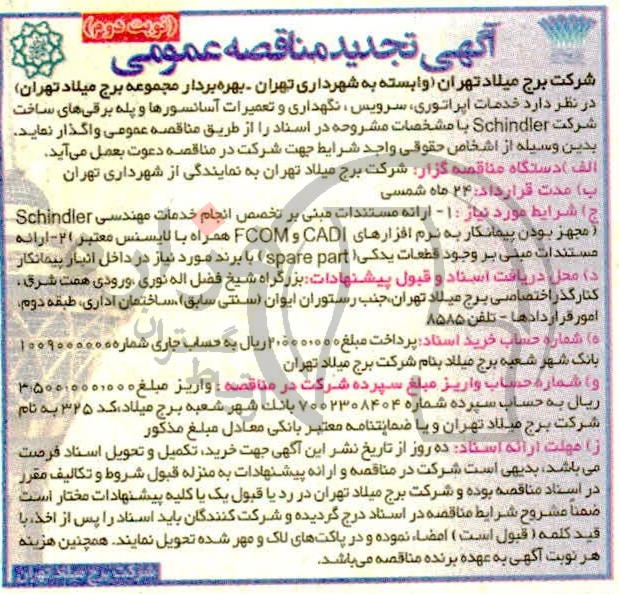 (نوبت دوم)
آگهی تجدید مناقصه عمومی
شرکت برج میلاد تهران (وابسته به شهرداری تهران - بهره‌بردار مجموعه برج میلاد تهران)
در نظر دارد خدمات اپراتوری، سرویس، نگهداری و تعمیرات آسانسورها و پله برقی‌های ساخت
شرکت Schindler با مشخصات مشروحه در اسناد را از طریق مناقصه عمومی واگذار نماید.
بدین وسیله از اشخاص حقوقی واجد شرایط جهت شرکت در مناقصه دعوت بعمل می‌آید.
الف) دستگاه مناقصه گزار: شرکت برج میلاد تهران به نمایندگی از شهرداری تهران
ب) مدت قرارداد: ۲۴ ماه شمسی
ج) شرایط مورد نیاز: ۱- ارائه مستندات مبنی بر تخصص انجام خدمات مهندسی Schindler
(مجهز بودن پیمانکار به نرم افزارهای CADI و FCOM همراه با لایسنس معتبر) ۲- ارائه
مستندات مبنی بر وجود قطعات یدکی (spare part) با برند مورد نیاز در داخل انبار پیمانکار
د) محل دریافت اسناد و قبول پیشنهادات: بزرگراه شیخ فضل اله نوری، ورودی همت شرق،
کنارگذر اختصاصی برج میلاد تهران، جنب رستوران ایوان (سنتی سابق)، ساختمان اداری، طبقه دوم،
امور قراردادها - تلفن ۸۵۸۵
ه) شماره حساب خرید اسناد: پرداخت مبلغ ۲،۰۰۰،۰۰۰ ریال به حساب جاری شماره ۱۰۰۹۰۰۰۰۰۰۰۰
بانک شهر شعبه برج میلاد بنام شرکت برج میلاد تهران
و) شماره حساب واریز مبلغ سپرده شرکت در مناقصه: واریز مبلغ ۳،۵۰۰،۰۰۰،۰۰۰
ریال به حساب سپرده شماره ۷۰۰۲۳۰۸۴۰۴ بانک شهر شعبه برج میلاد، کد ۳۲۵ به نام
شرکت برج میلاد تهران و یا ضمانتنامه معتبر بانکی معادل مبلغ مذکور
ز) مهلت ارائه اسناد: ده روز از تاریخ نشر این آگهی جهت خرید، تکمیل و تحویل اسناد فرصت
می باشد، بدیهی است شرکت در مناقصه و ارائه پیشنهادات به منزله قبول شروط و تکالیف مقرر
در اسناد مناقصه بوده و شرکت برج میلاد تهران در رد یا قبول یک یا کلیه پیشنهادات مختار است
ضمناً مشروح شرایط مناقصه در اسناد درج گردیده و شرکت کنندگان باید اسناد را پس از اخذ، با
قید کلمه (قبول است) امضاء نموده و در پاکت‌های لاک و مهر شده تحویل نمایند. همچنین هزینه
هر نوبت آگهی به عهده برنده مناقصه می‌باشد.
شرکت برج میلاد تهران